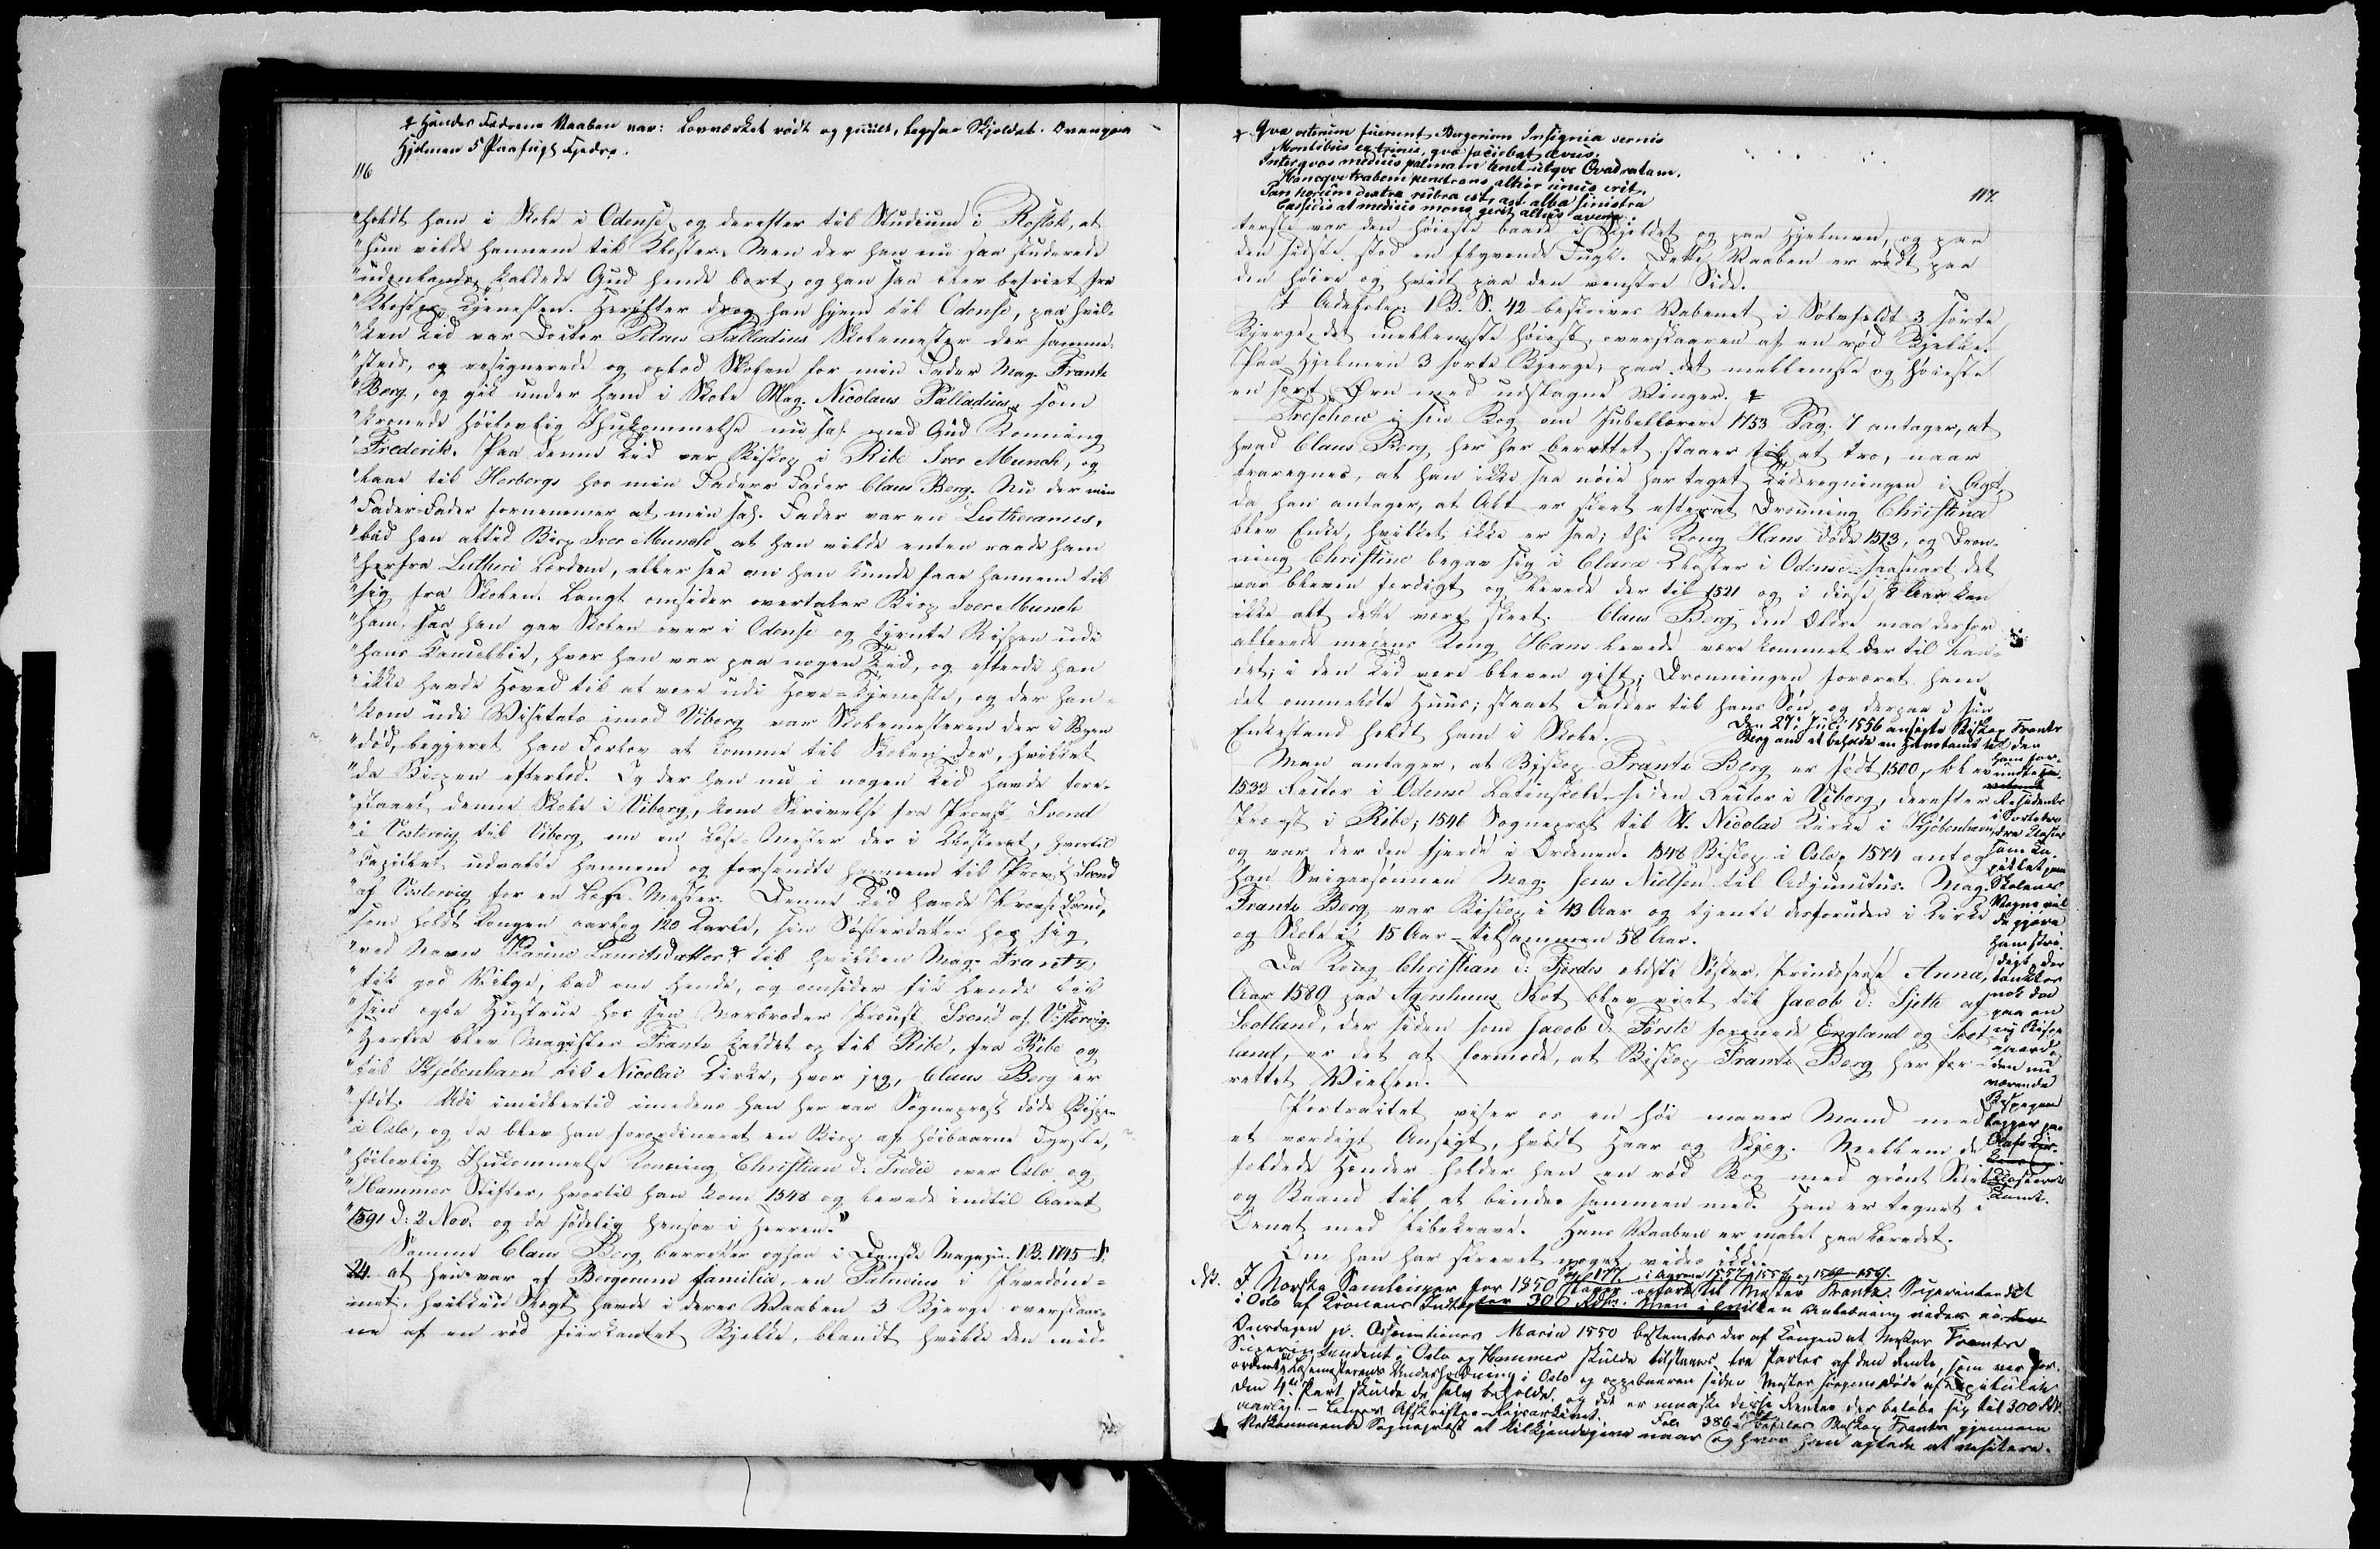 ☿ Hendes Fædrene Vaaben var: Lovværket rødt og guult, ligesaa Skjoldet. Ovenpaa
Hjelmen 5 Paafugl Fjedre.
116
"holdt ham i Skole i Odense og derefter til Studium i Rostok, at
"hun vilde hannem til Kloster. Men der han nu saa studerede
"udenlands, kaldede Gud hende bort, og han saa blev befriet fra
"Kloster-Tjenesten. Herefter drog han hjem til Odense, paa hvil-
"ken Tid var Doctor Petrus Palladius Skolemester der samme-
"steds, og resignerede og oplod Skolen for min Fader Mag. Frants
"Berg, og gik under ham i Skole Mag. Nicolaus Palladius, som
"kronede høilovlig Ihukommelse nu sal. med Gud Konning
"Frederik. Paa denne Tid var Biskop i Ribe Iver Munch, og
"laae til Herbergs hos min Faders Fader Claus Berg. Nu der min
"Fader-Fader fornemmer at min sal. Fader var en Lutheranus,
"bad han altid Bisp Iver Munch at han vilde enten raade ham
"herfra Lutheri Lærdom, eller see om han kunde faae hannem til
"sig fra Skolen. Langt omsider overtaler Bisp Iver Munch
"ham, saa han gav Skolen over i Odense og tjente Bispen udi
"hans Cancellie, hvor han var paa nogen Tid, og efterdi han
"ikke havde Hoved til at være udi Hove-Tjeneste, og der han
"kom udi Visitats imod Viborg var Skolemesteren der i Byen
"død, begjeret han Forlov at komme til Skolen der, hvilket
"da Bispen efterlod. Og der han nu i nogen Tid havde fore-
"staaet denne Skole i Viborg, kom Skrivelse fra Provst Svend
"i Vestervig til Viborg, om en Læse-Mester der i Klosteret, hvortil
"Capitlet udvalde hannem og forsendte hannem til Provst Svend
"af Vestervig for en Læse-Mester. Denne Tid havde Provst Svend,
"som holdt Kongen aarlig 120 Karle, sin Søsterdatter hos sig
"ved Navn Karine Lauritsdatter ☿ til hvilken Mag. Frants
"fik god Villie, bad om hende, og omsider fik hende til
"sin egte Hustrue hos sin Morbroder Provst Svend af Vestervig.
"Herfra blev Magister Frants kaldet op til Ribe, fra Ribe og
"til Kjøbenhavn til Nicolai Kirke, hvor jeg, Claus Berg er
"født. Udi imidlertid imedens han her var Sogneprest døde Bispen
"i Oslo, og da blev han forordineret en Bisp af høibaarne Fyrste,
"høilovlig Ihukommelse Konning Christian d: Tredie over Oslo og
"Hammer Stifter, hvortil han kom 1548 og levede indtil Aaret
"1591 d: 2 Nov. og da sødelig hensov i Herren."
Samme Claus Berg beretter ogsaa i Danske Magazin. 1 B. 1745 S.
24. at han var af Bergorum familia, en Patricius i Pavedøm-
met, hvilken Slægt havde i deres Vaaben 3 Bjerge overskaar-
ne af en rød fiirkantet Bjelke, blandt hvilke den mid-
☿ Qvæ veterum fuerunt Bergorum Insignia sernis
Montibus ex trinis, qvæ faciebat avus.
Inter qvos medius palmam tenet utqve Qvadratam,
Hancqve trabem penetrans altior unus erit.
Pars horum dextra rubra est, ast alba sinistra
Cassidis at medius mons gerit altus avem.
117.
terste var den høieste baade i Skjoldet og paa Hjelmen, og paa
den sidste stod en flyvende Fugl. Dette Vaaben er rødt paa
den høire og hvidt paa den venstre Side.
I Adelslex. 1 B. S. 42 beskrives Vabenet i Sølvfeldt 3 sorte
Bjerge, det mellemste høiest, overskaaren af en rød Bjelke.
Paa Hjelmen 3 sorte Bjerge, paa det mellemste og høieste
en sort Ørn med udslagne Vinger. ☿
Treschow i sin Bog om Jubellærere 1753 Pag. 7 antager, at
hvad Claus Berg her har berettet staaer til at troe, naar
fraregnes, at han ikke saa nøie har taget Tidsregningen i Agt,
da han antager, at Alt er skeet efterat Dronning Christina
blev Enke, hvilket ikke er saa; thi Kong Hans døde 1513, og Dron-
ning Christine begav sig i Claræ Kloster i Odense saasnart det
var bleven færdigt og levede der til 1521 og i disse 8 Aar kan
ikke alt dette være skeet. Claus Berg den Ældre maa derfor
allerede medens Kong Hans levede være kommet der til Lan-
det; i den Tid være bleven gift; Dronningen foræret ham
det ommeldte Huus; staaet Fadder til hans Søn, og derpaa i sin
Enkestand holdt ham i Skole.
Den 27de Juli 1556 ansøgte Biskop Frants
Berg om at beholde en Huustomt til den
Man antager, at Biskop Frants Berg er født 1500, blev
1533 Rector i Odense Latinskole, siden Rector i Viborg, derefter
Prest i Ribe; 1546 Sogneprest til St. Nicolai Kirke i Kjøbenhavn,
og var der den fjerde i Ordenen. 1548 Biskop i Oslo. 1574 antog
han Svigersønnen Mag. Jens Nielsen til Adjunctus. Mag.
Frants Berg var Biskop i 43 Aar og tjente desforuden i Kirke
og Skole i 15 Aar – tilsammen 58 Aar.
Da Kong Christian d: Fjerdes ældste Søster, Prindsesse Anna,
Aar 1589 paa Agershuus Slot blev viet til Jacob d: Sjette af
Scotland, der siden som Jacob d. Første forenede England og Scot-
land, er det at formode, at Biskop Frants Berg har for-
rettet Vielsen.
Portraitet viser os en høi maver Mand med
et værdigt Ansigt, hvidt Haar og Skjæg. Mellem de
foldede Hænder holder han en rød Bog med grønt Snit
og Baand til at bindes sammen med. Han er tegnet i
Ornat med Pibekrave. Hans Vaaben er malet paa Lærredet.
Om han har skrevet noget vides ikke.
ham for-
undte
Residents
i Graabrø-
dre Kloster
som Ca-
pitlet paa
Skolens
Vegne vil-
de gjøre
ham stri-
digt, der
paa en
ny Bisp
gaard,
den nu
værende
Bispegaard
ligger paa
Klosterets
Tomt.
NB. I Norske Samlinger for 1850 Pag. 177, i Agerne 1557, 1558 og 1560-1561.
staaer opført til Mester Frants Superintendent
i Oslo af Kronens Indtægter 300 Rdlr. Men i hvilken Anledning vides ei.
Onsdagen p. Assumtionis Mariæ 1550 bestemtes der af Kongen at Mester Frantz
Superintendent i Oslo og Hammer skulde tilstaaes tre Parter af den Rente, som var for-
ordnet Læsemesterens Underholdning i Oslo og oppebaaren siden Mester Jørgens Døde af Capitulum
den 4de Part skulde de selv beholde. og det er maaske disse Renter der beløbe sig til 300 Rdr.
aarlig. – Langes Afskrifter - Rigsarkivet. Fol. 386 befales Biskop Frants gjennem
vedkommende Sogneprest at tilkjendegive naar og hvor han agtede at visitere.